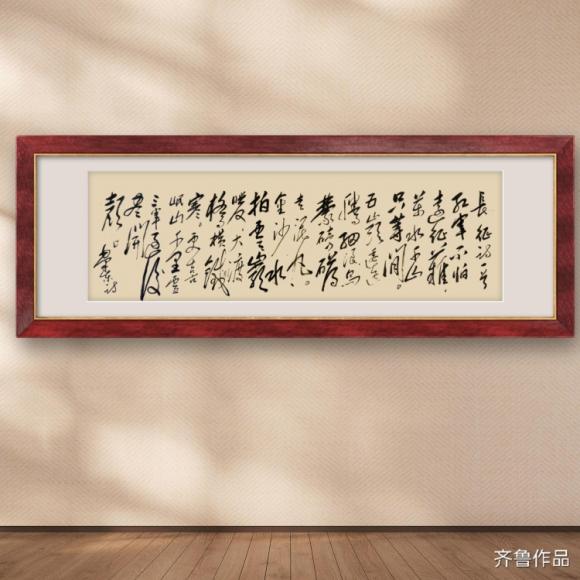 長征詩一首
紅軍不怕
遠征難,
萬水千山
只等閒。
五嶺逶迤
騰細浪烏
蒙磅礴
走泥丸。
金沙水
拍雲崖
暖大渡
橋橫鐵
寒。更喜
岷山千里雪
三軍過後
盡開
顏。
齐鲁作品